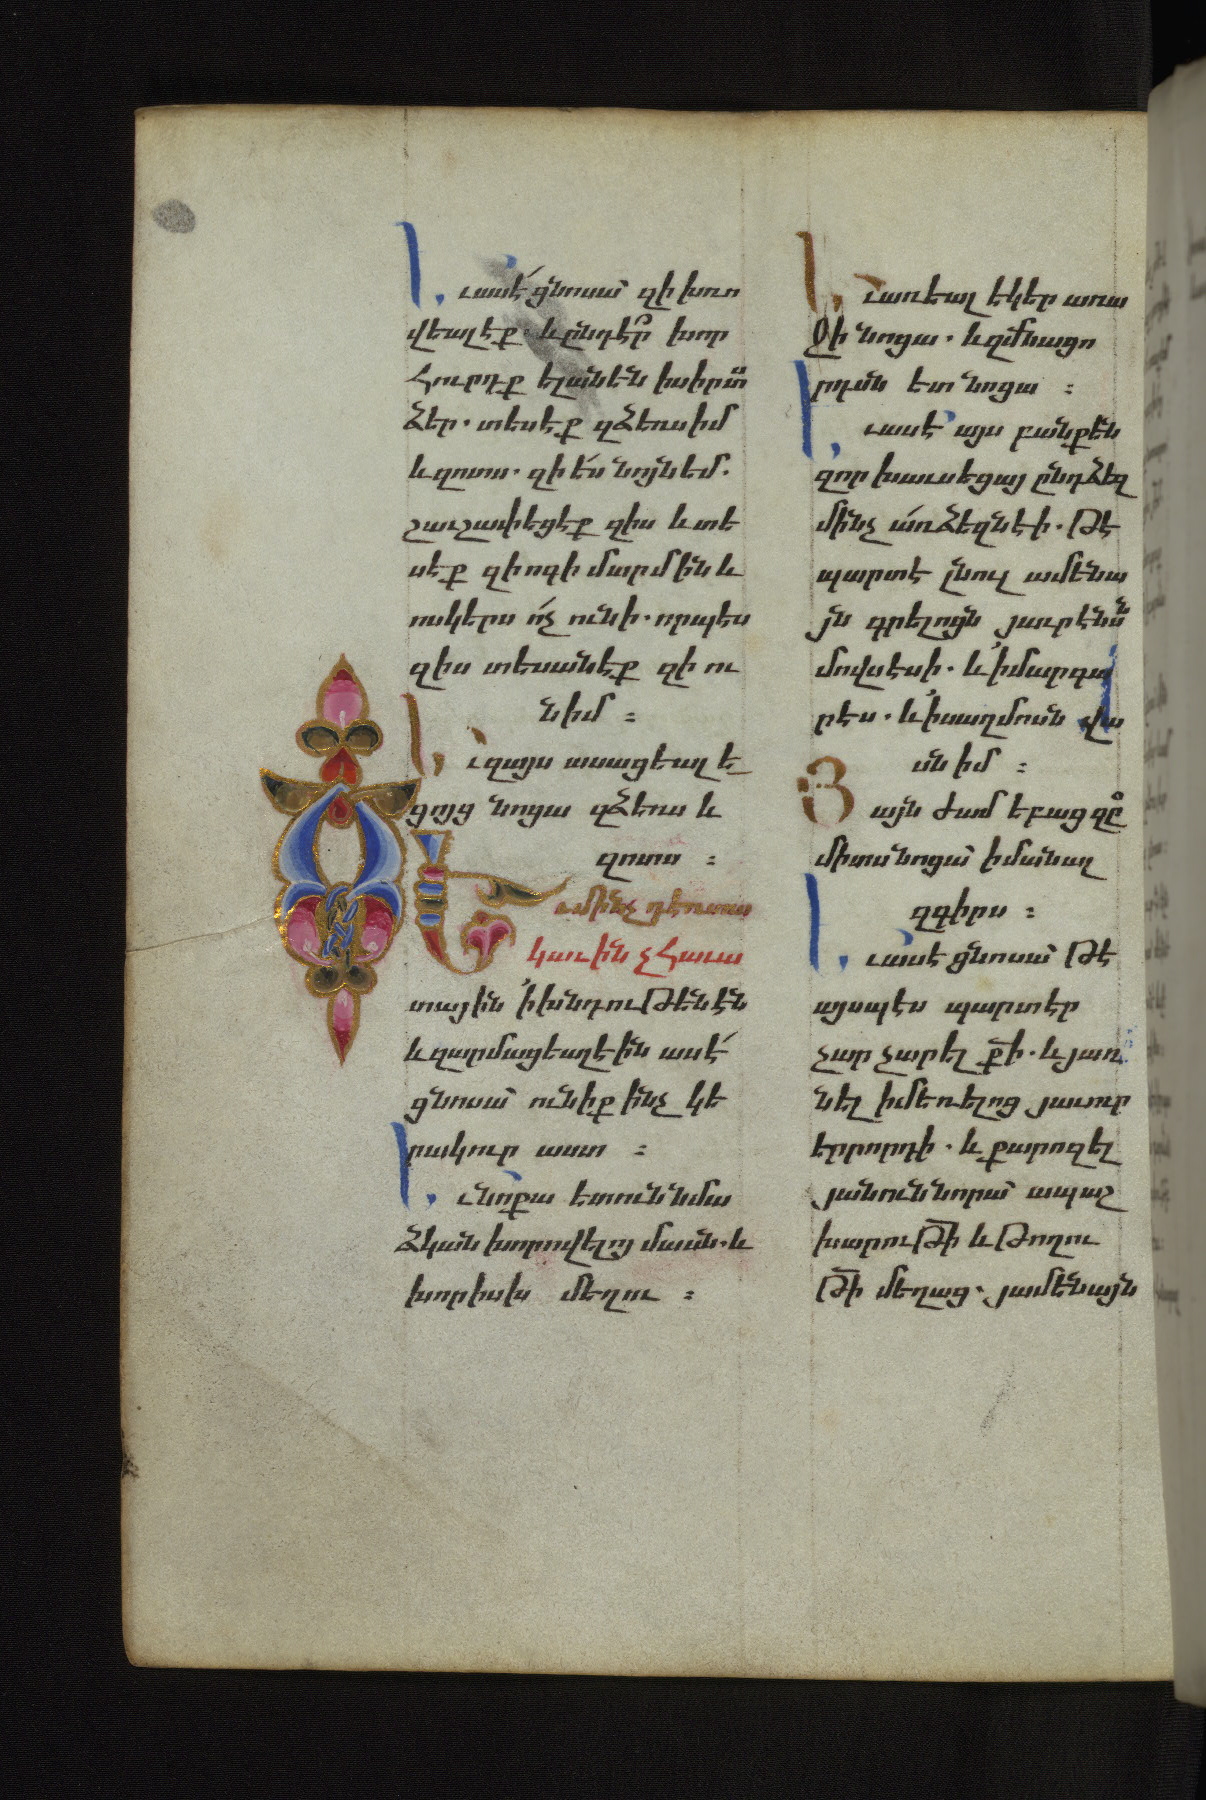 Եւ ասէ ցնոսա զի խռո
վեալ էք. և ընդէ՞ր խոր
հուրդք ելանեն ի սիրտս
ձեր. տեսէք զձեռս իմ
և զոտս. զի ե՛ս նոյն եմ.
շաւշափեցէք զիս և տե
սէք զի ոգի մարմին և
ոսկերս ո՛չ ունի. որպէս
զիս տեսանէք զի ու
նիմ :
Եւ զայս ասացեալ ե
ցոյց նոցա զձեռս և
զոտս :
Եւ մինչ դեռ տա
կաւին չհաւա
տային ՛ի խնդութենէն
և զարմացեալ էին ասէ՛
ցնոսա ունիք ինչ կե
րակուր աստ :
Եւ նոքա ետուն նմա
ձկան խորովելոյ մասն. և
խորիսխ մեղու :
Եւ առեալ եկեր առա
ջի նոցա. և զմնացո
րդսն ետ նոցա :
Եւ ասէ այս բանք են
զոր խաւսեցայ ընդ ձեզ
մինչ ա՛ռ ձեզն էի. թէ
պարտ է լնուլ ամենա
յն գրելոցն յաւրէնսն
մովսէսի. և ՛ի մարգա
րէս. և ՛ի սաղմոսն վա
սն իմ :
Յայն ժամ եբաց զը
միտս նոցա իմանալ
զգիրս :
Եւ ասէ ցնոսա թէ
այսպէս պարտ էր
չարչարել քի. և յառ
նել ի մեռելոց յաւուր
երրորդի. և քարոզել
յանուն նորա ապաշ
խարութի և թողու
թի մեղաց. յամենայն